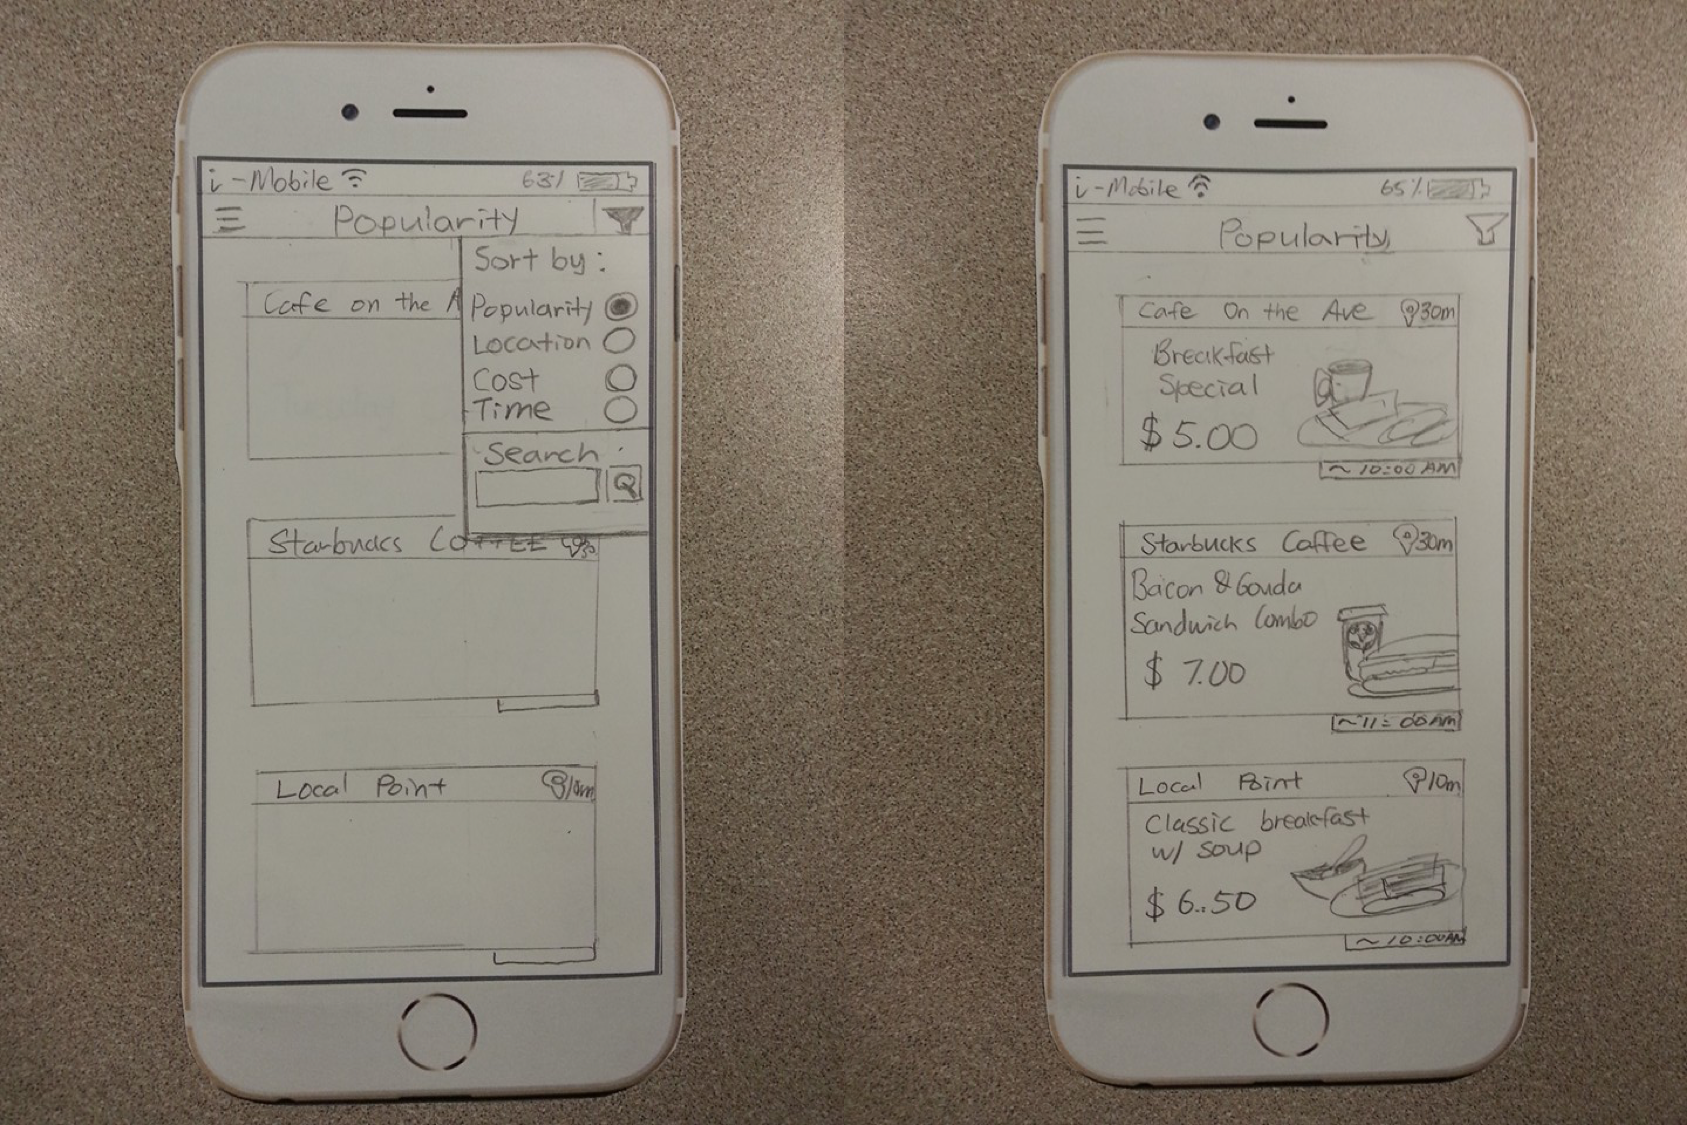 i-Mobile 63%
Popularity
Sort by:
Cafe on the A
Popularity
Location
Cost
Time
Search :
Starbucks COFFEE 30
Local Point 10m
i-Mobile 65%
Popularity
Cafe On the Ave 30m
Breakfast
Special
$5.00
~10:00 AM
Starbucks Caffee 30m
Bacon & Gouda
Sandwich Combo
$ 7.00
~11:00AM
Local Point 10m
Classic breakfast
w/ soup
$ 6.50
~10:00AM